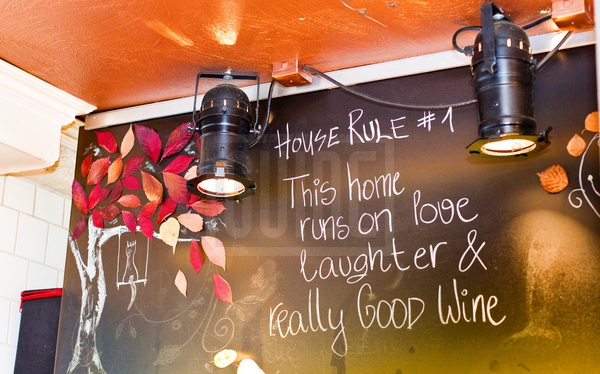 House Rule #1
This home
runs on love
laughter &
really GOOD Wine